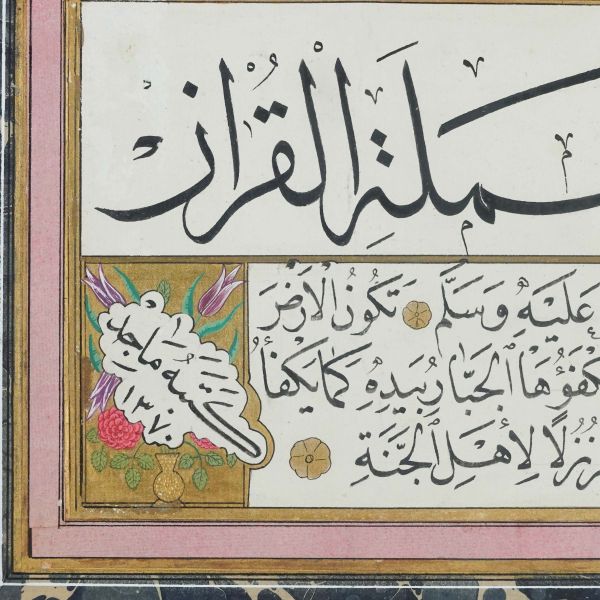 ـملة القران
عَلَيْهِ وَسَلَّمَ تَكُونُ الْاَرْضَ
ـكْفَؤُهَا الْجَبَّارُ بِيَدِهِ كَمَا يَكْفَأُ
ـرِ نُزُلًا لِاَهْلِ الْجَنَّةِ
كتبه ماجد
١٣٧٠